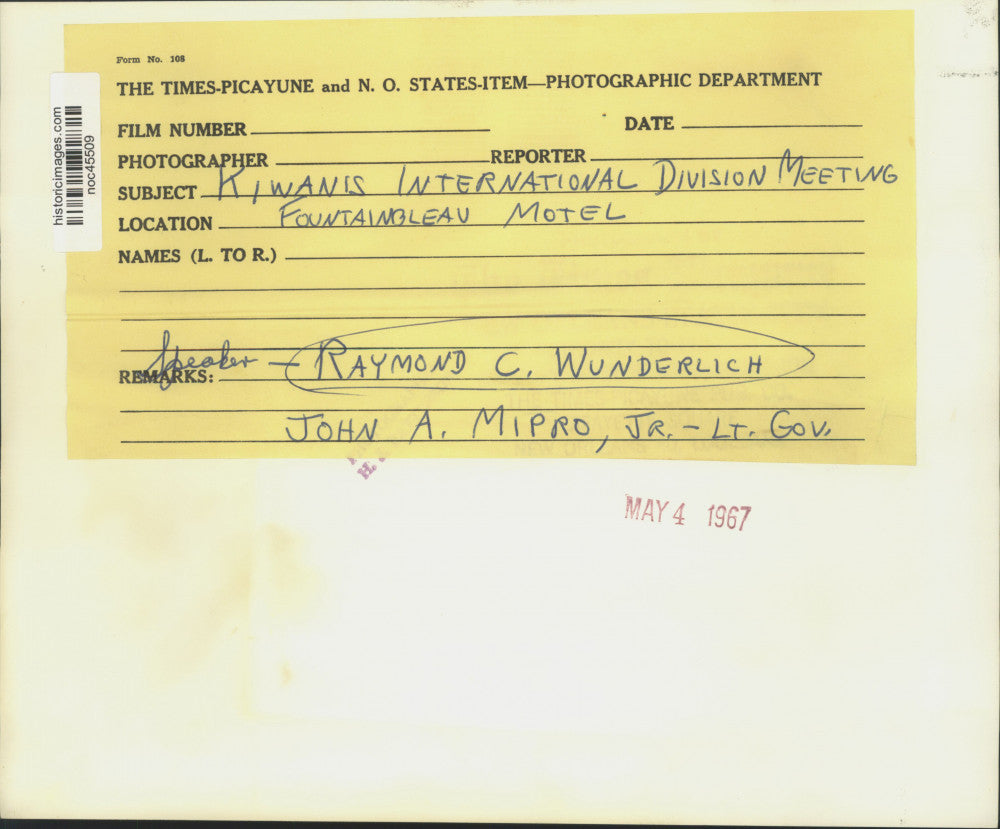 Form No. 108
THE TIMES-PICAYUNE and N. O. STATES-ITEM—PHOTOGRAPHIC DEPARTMENT
FILM NUMBER
DATE
PHOTOGRAPHER
REPORTER
SUBJECT KIWANIS INTERNATIONAL DIVISION MEETING
LOCATION FOUNTAINBLEAU MOTEL
NAMES (L. TO R.)
Speaker - RAYMOND C. WUNDERLICH
REMARKS:
JOHN A. MIPRO, JR. - LT. GOV.
MAY 4 1967
historicimages.com
noc45509